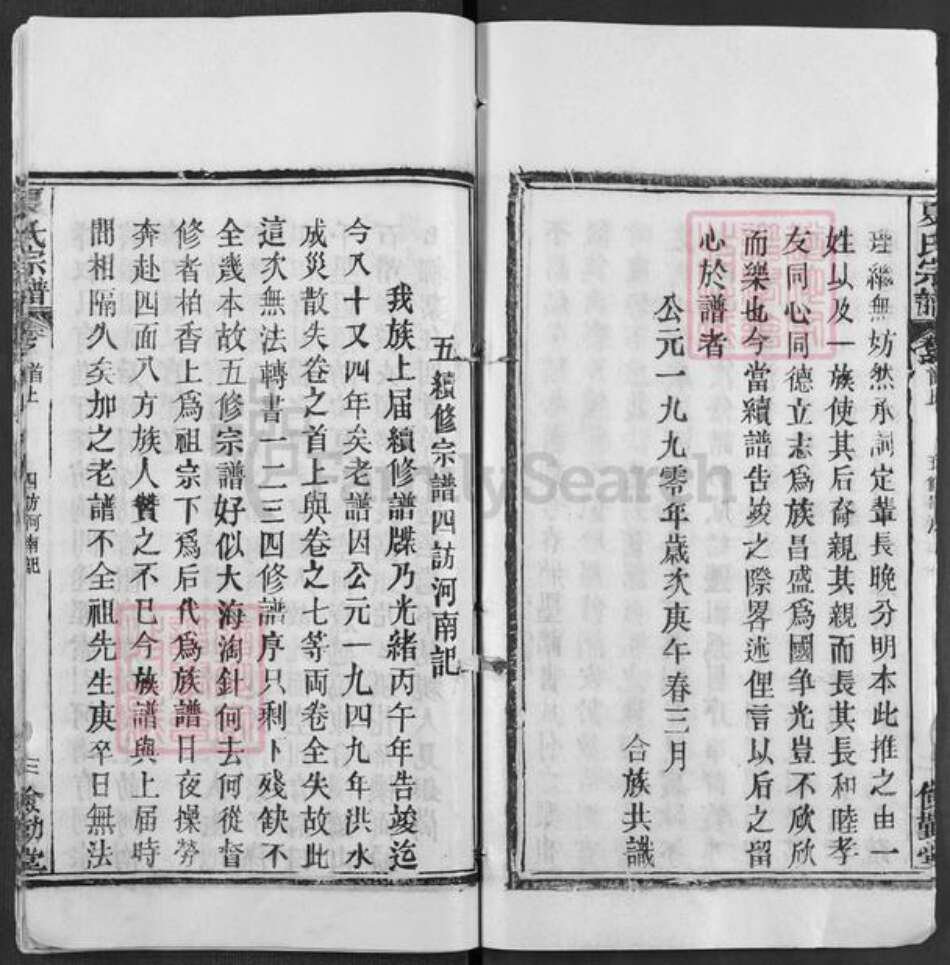 理纖無妨然承詞定輩長晚分明本此推之由一
姓以及一族使其后裔親其親而長其長和睦孝
友同心同德立志為族昌盛爲國争光豈不欣欣
而樂也今當續譜告竣之際畧述俚言以后之留
心於譜者
公元一九九零年歲次庚午春三月
合族共識
五續修宗譜四訪河南記
我族上届續修譜牒乃光緒丙午年告竣迄
今八十又四年矣老譜因公元一九四九年洪水
成災散失卷之首上與卷之七等両卷全失故此
這次無法轉書一二三四修譜序只剩卜殘缺不
全幾本故五修宗譜好似大海淘針何去何從督
修者柏香上爲祖宗下爲后代爲族譜日夜操勞
奔赴四面八方族人贊之不已今族譜與上届時
間相隔久矣加之老譜不全祖先生庚卒日無法
夏氏宗譜
卷
首上
四訪河南記
三
儉勤堂
夏氏宗譜
FamilySearch